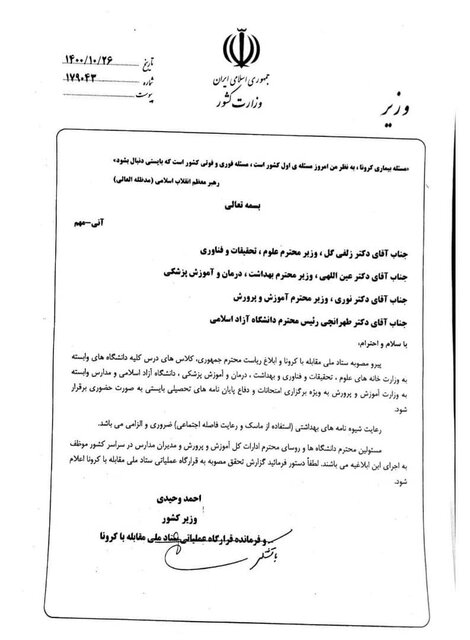 تاریخ ۱۴۰۰/۱۰/۲۶
شماره ۱۷۹۰۴۳
پیوست
جمهوری اسلامی ایران
وزارت کشور
وزیر
«مسئله بیماری کرونا ، به نظر من امروز مسئله ی اول کشور است ، مسئله فوری و فوتی کشور است که بایستی دنبال بشود»
رهبر معظم انقلاب اسلامی (مدظله العالی)
بسمه تعالی
آنی-مهم
جناب آقای دکتر زلفی گل ، وزیر محترم علوم ، تحقیقات و فناوری
جناب آقای دکتر عین اللهی، وزیر محترم بهداشت ، درمان و آموزش پزشکی
جناب آقای دکتر نوری ، وزیر محترم آموزش و پرورش
جناب آقای دکتر طهرانچی رئیس محترم دانشگاه آزاد اسلامی
با سلام و احترام،
پیرو مصوبه ستاد ملی مقابله با کرونا و ابلاغ ریاست محترم جمهوری، کلاس های درس کلیه دانشگاه های وابسته
به وزارت خانه های علوم ، تحقیقات و فناوری و بهداشت ، درمان و آموزش پزشکی ، دانشگاه آزاد اسلامی و مدارس وابسته
به وزارت آموزش و پرورش به ویژه برگزاری امتحانات و دفاع پایان نامه های تحصیلی بایستی به صورت حضوری برقرار
شود.
رعایت شیوه نامه های بهداشتی (استفاده از ماسک و رعایت فاصله اجتماعی) ضروری و الزامی می باشد.
مسئولین محترم دانشگاه ها و روسای محترم ادارات کل آموزش و پرورش و مدیران مدارس در سراسر کشور موظف
به اجرای این ابلاغیه می باشند. لطفاً دستور فرمائید گزارش تحقق مصوبه به قرارگاه عملیاتی ستاد ملی مقابله با کرونا اعلام
شود.
احمد وحیدی
وزیر کشور
و فرمانده قرارگاه عملیاتی ستاد ملی مقابله با کرونا